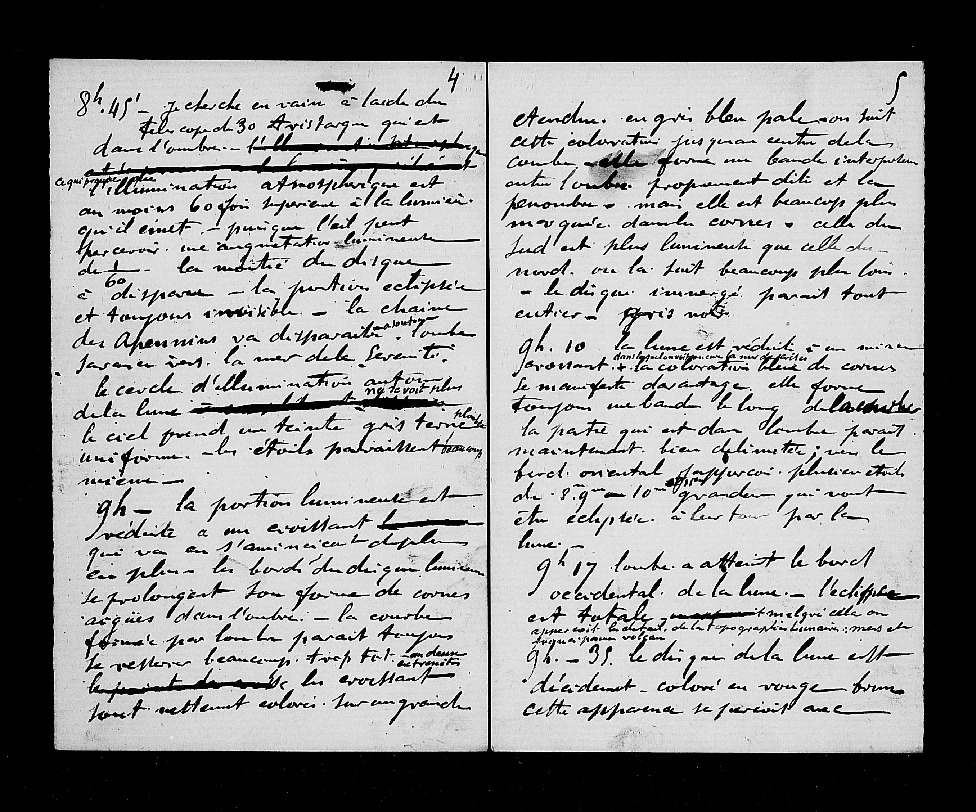 4
8h.45' - je cherche en vain à l'aide du
telescope de 30 Aristarque qui est
dans l'ombre -
ce qui prouve que
l'illumination atmosphérique est
au moins 60 fois superieure à la lumière
qu'il emet. - puisque l'œil peut
percevoir une augmentation lumineuse
de 1/60 - la moitié du disque
à disparu - la portion ecliptée
est toujours invisible - la chaine
des Apennins va disparaitre l'ombre
s'avance vers la mer de la Serenité.
le cercle d'illumination autour
de la lune ne se voit plus
le ciel prend une teinte gris terne plus
uniforme - les étoiles paraissent beaucoup
mieux -
9h - la portion lumineuse est
réduite a un croissant
qui va en s'amincicant de plus
en plus - les bords du disque lumineux
se prolongent sous forme de cornes
aigües dans l'ombre. - la courbe
formée par l'ombre parait toujours
se resserrer beaucoup trop tot -
extremités
les croissant
sont nettement colorés sur un grande
5
etendue en gris bleu pale - on suit
cette coloration jusqu'au centre de la
courbe - elle forme une bande interposée
entre l'ombre proprement dite et la
penombre - mais elle est beaucoup plus
marquée dans les cornes - celle du
sud est plus lumineuse que celle du
nord. on la suit beaucoup plus loin.
- le disque immergé parait tout
entier - gris
9h. 10 la lune est réduite à un mince
croissant - la coloration bleue des cornes
se manifeste davantage. elle forme
toujours une bande le long de
la partie qui est dans l'ombre parait
maintenant bien delimitée; vers le
bord oriental j'apperçois plusieurs etoiles
de 8.e 9me - 10me grandeur qui vont
être eclipsées à leur tour par la
lune. -
9h 17 l'ombre a atteint le bord
occidental de la lune. - l'éclipse
est totale malgré cela on
apperçoit de la topographie lunaire mais
9h. - 35. le disque de la lune est
décidement - coloré en rouge brun
cette apparence se perçoit avec